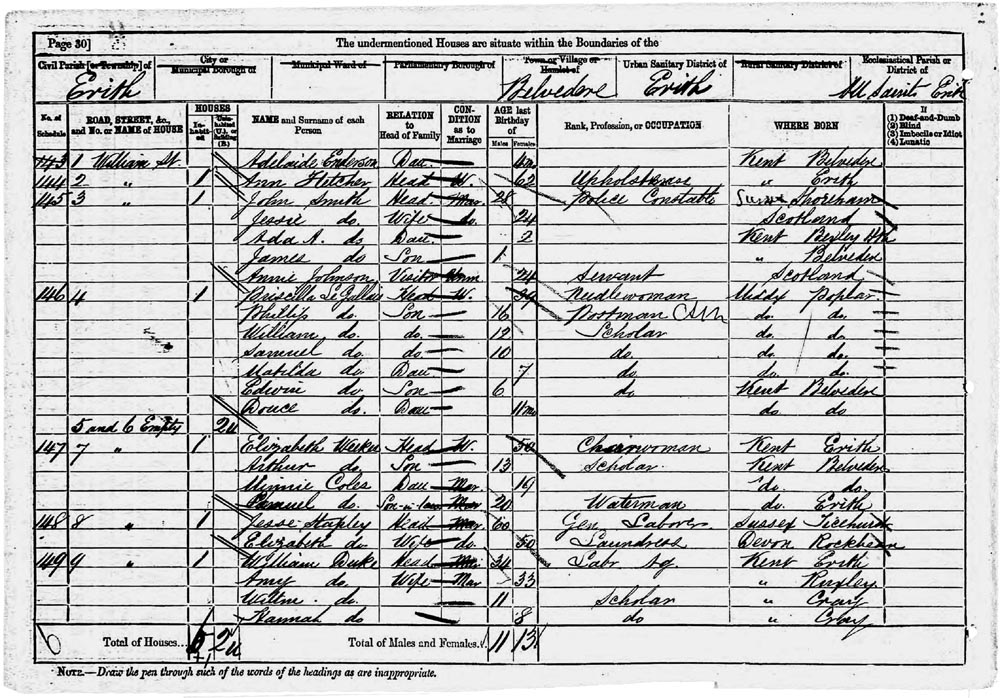 Page 30]
The undermentioned Houses are situate within the Boundaries of the
Civil Parish [or Township] of
City or Municipal Borough of
Municipal Ward of
Parliamentary Borough of
Town or Village or Hamlet of
Urban Sanitary District of
Rural Sanitary District of
Ecclesiastical Parish or District of
Erith Belvedere Erith All Saints Erith
No. of Schedule
ROAD, STREET, &c., and No. or NAME of HOUSE
HOUSES
Inhabited
Uninhabited (U.), or Building (B.)
NAME and Surname of each Person
RELATION to Head of Family
CONDITION as to Marriage
AGE last Birthday of
Males Females
Rank, Profession, or OCCUPATION
WHERE BORN
If
(1) Deaf-and-Dumb
(2) Blind
(3) Imbecile or Idiot
(4) Lunatic
143 1 William St. Adelaide Enderson Dau Kent Belvedere
144 2 " 1 Ann Fletcher Head W. 62 Upholstress " Erith
145 3 " 1 John Smith Head Mar 28 Police Constable Shoreham
Jessie do. Wife do. 24 Scotland
Ada A. do Dau 2 Kent Bexley Hth
James do Son 1 " Belvedere
Annie Johnson Visitor Unm 24 Servant Scotland
146 4 " 1 Priscilla Le Gallais Head W. 39 Needlewoman Middx Poplar
Phillip do. Son 16 Postman do. do.
William do. do. 12 Scholar do. do.
Samuel do. do. 10 do. do. do.
Matilda do Dau 7 do do. do.
Edwin do Son 6 do Kent Belvedere
Douce do. Dau 11mo do. do
5 and 6 Empty 2u
147 7 " 1 Elizabeth Head W. 50 Charwoman Kent Erith
Arthur do. Son 13 Scholar. Kent Belvedere
Minnie Coles Dau Mar. 19 do. do.
Samuel do. Son-in-law Mar 20 Waterman do. Erith
148 8 " 1 Jesse Stapley Head Mar 60 Gen Laborer Sussex Ticehurst
Elizabeth do Wife do. 50 Laundress Devon
149 9 " 1 William Duke Head Mar 34 Labr Ag. Kent Erith
Amy do. Wife Mar 33 " Ruxley
Willm. do. 11 Scholar " Cray
Hannah do 8 do " Cray
6 Total of Houses... 6 2u Total of Males and Females.. 11 13
NOTE.—Draw the pen through such of the words of the headings as are inappropriate.